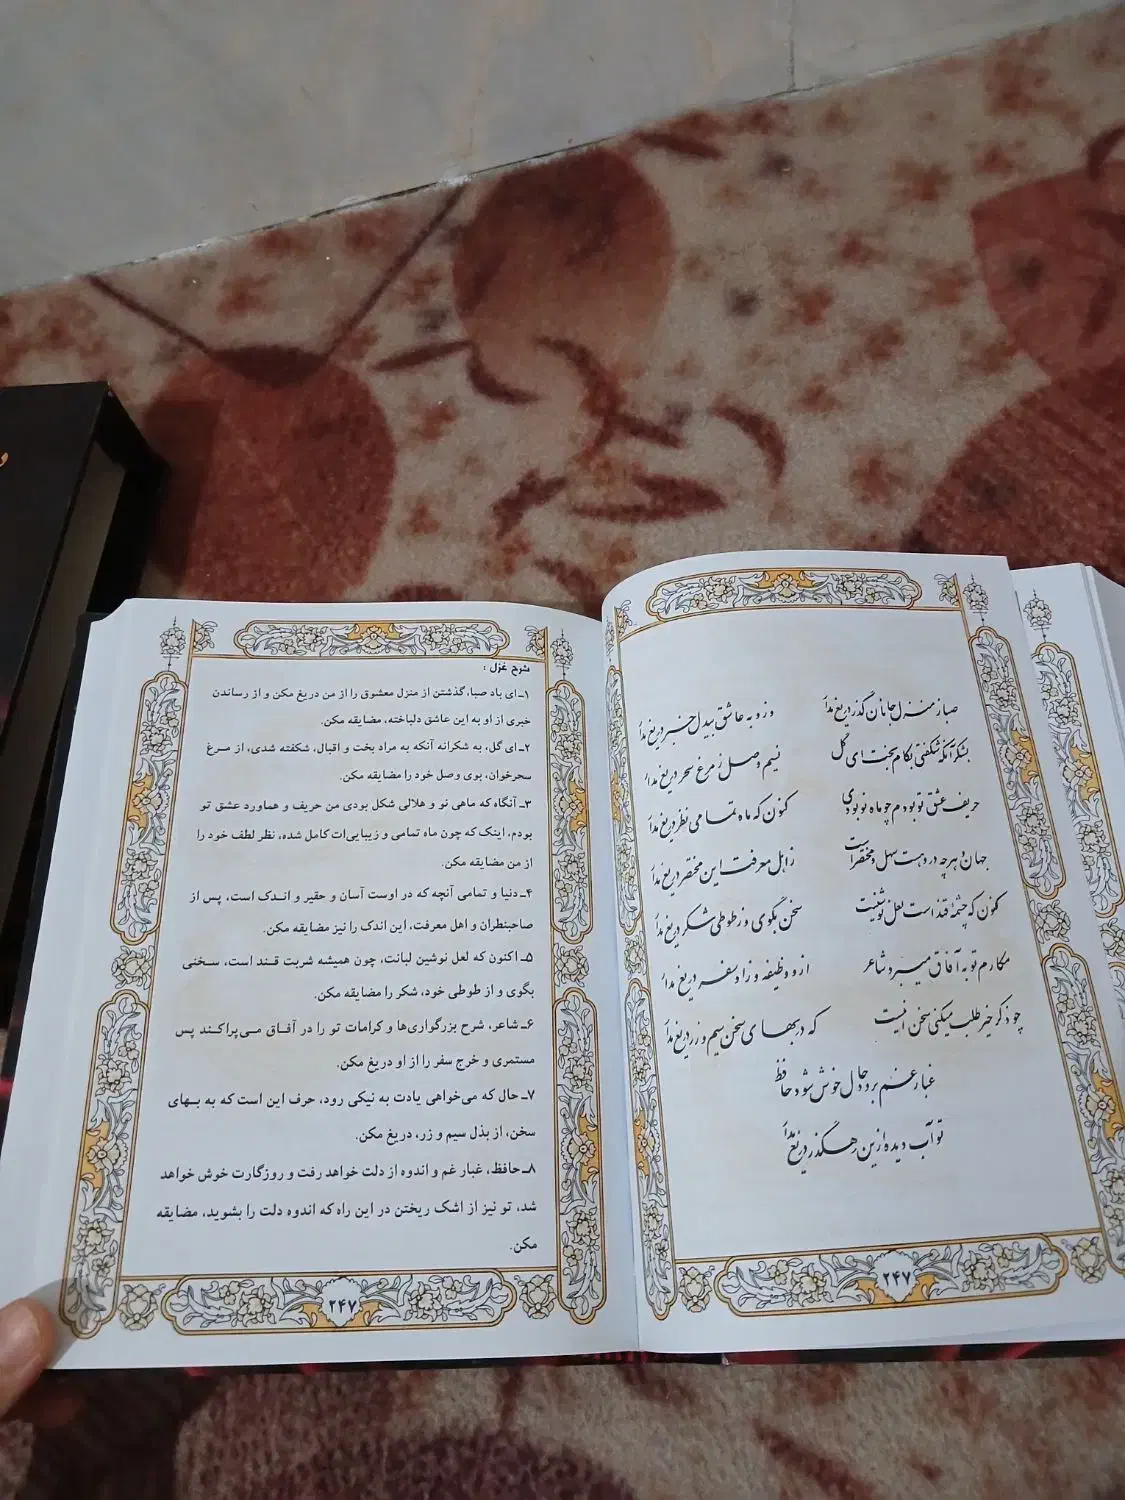 صبا ز منزل جانان گذر دریغ مدار
وز و به عاشق بیدل خبر دریغ مدار
بشکر آنکه شکفتی بکام بخت ای گل
نسیم وصل ز مرغ سحر دریغ مدار
حریف عشق تو بودم چو ماه نو بودی
کنون که ماه تمامی نظر دریغ مدار
جهان و هر چه در و هست سهل و مختصر است
ز اهل معرفت این مختصر دریغ مدار
کنون که چشمهٔ قند است لعل نوشینت
سخن بگوی و ز طوطی شکر دریغ مدار
مکارم تو به آفاق میبرد شاعر
از و وظیفه و زاد سفر دریغ مدار
چو ذکر خیر طلب میکنی سخن اینست
که در بهای سخن سیم و زر دریغ مدار
غبار غم برود حال خوش شود حافظ
تو آب دیده ازین رهگذر دریغ مدار
۲۴۷
شرح غزل :
۱ـ ای باد صبا، گذشتن از منزل معشوق را از من دریغ مکن و از رساندن
خبری از او به این عاشق دلباخته، مضایقه مکن.
۲ـ ای گل، به شکرانه آنکه به مراد بخت و اقبال، شکفته شدی، از مرغ
سحرخوان، بوی وصل خود را مضایقه مکن.
۳ـ آنگاه که ماهی نو و هلالی شکل بودی من حریف و هماورد عشق تو
بودم، اینک که چون ماه تمامی و زیبایی‌ات کامل شده، نظر لطف خود را
از من مضایقه مکن.
۴ـ دنیا و تمامی آنچه که در اوست آسان و حقیر و اندک است، پس از
صاحبنظران و اهل معرفت، این اندک را نیز مضایقه مکن.
۵ـ اکنون که لعل نوشین لبانت، چون همیشه شربت قند است، سخنی
بگوی و از طوطی خود، شکر را مضایقه مکن.
۶ـ شاعر، شرح بزرگواری‌ها و کرامات تو را در آفاق می‌پراکند پس
مستمری و خرج سفر را از او دریغ مکن.
۷ـ حال که می‌خواهی یادت به نیکی رود، حرف این است که به بهای
سخن، از بذل سیم و زر، دریغ مکن.
۸ـ حافظ، غبار غم و اندوه از دلت خواهد رفت و روزگارت خوش خواهد
شد، تو نیز از اشک ریختن در این راه که اندوه دلت را بشوید، مضایقه
مکن.
۲۴۷